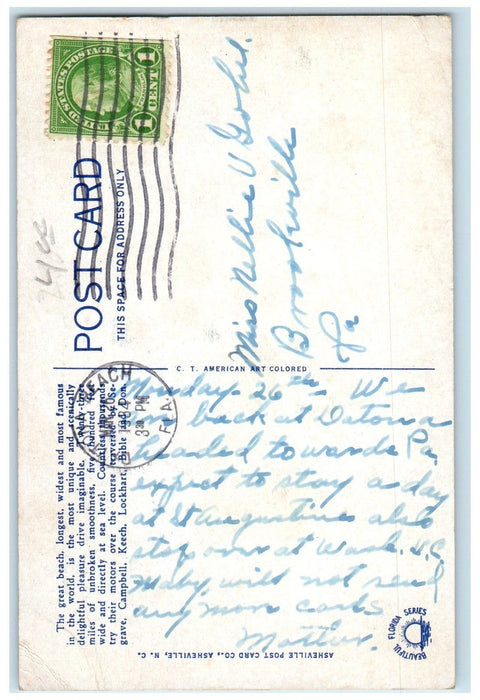 UNITED STATES POSTAGE
1 CENT 1
POST CARD
THIS SPACE FOR ADDRESS ONLY
Miss Nellie V
Brookville
Pa
C. T. AMERICAN ART COLORED
BEACH
1934
3 30 PM
FLA.
The great beach, longest, widest and most famous
in the world, is the most unique and scenically
delightful pleasure drive imaginable. Twenty-three
miles of unbroken smoothness, five hundred feet
wide and directly at sea level. Countless thousands
try their motors over the course traversed by Se-
grave, Campbell, Keech, Lockhart, Bible and Don.
Monday 26th We
back at Datona
headed towards Pa.
expect to stay a day
at St Augustine also
stop over at Wash. D.C.
Maby will not send
any mor cards
Mother.
ASHEVILLE POST CARD CO., ASHEVILLE, N. C.
BEAUTIFUL FLORIDA SERIES